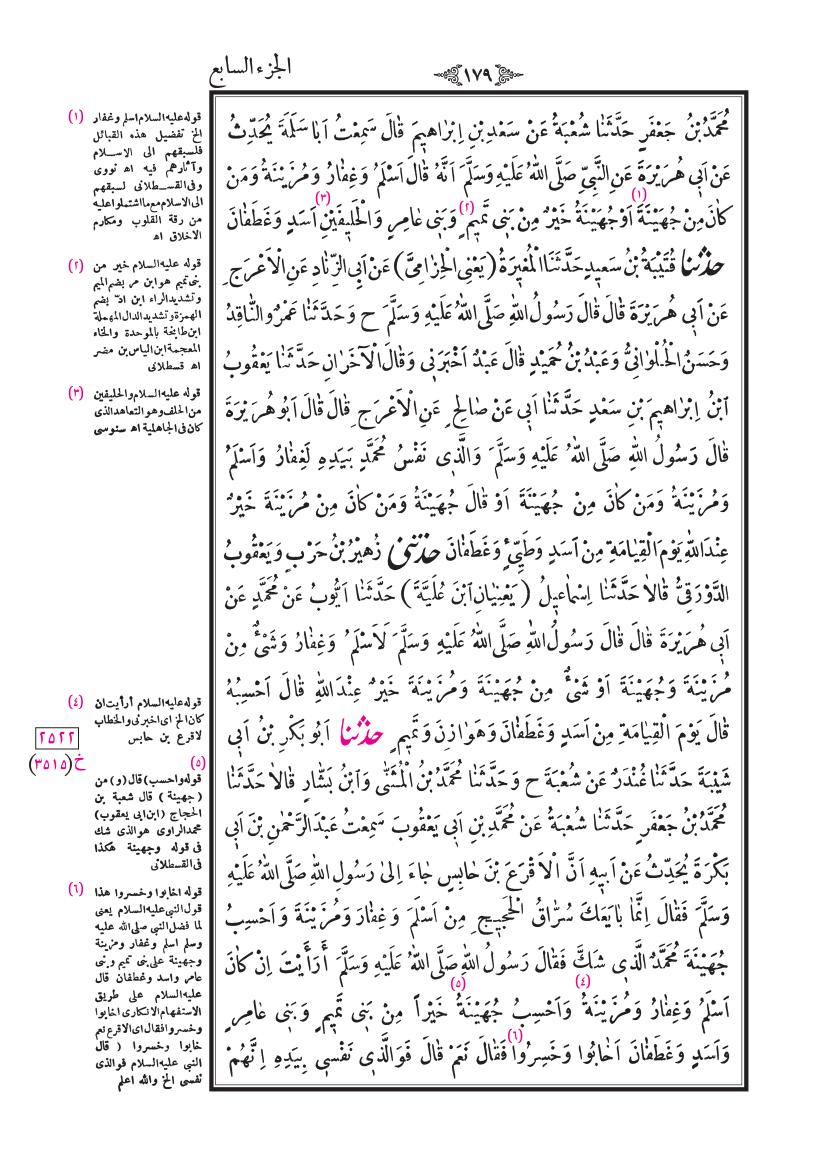 الجزء السابع
١٧٩
مُحَمَّدُ بْنُ جَعْفَرٍ حَدَّثَنَا شُعْبَةُ عَنْ سَعْدِ بْنِ اِبْرَاهِيمَ قَالَ سَمِعْتُ اَبَا سَلَمَةَ يُحَدِّثُ
عَنْ اَبِي هُرَيْرَةَ عَنِ النَّبِيِّ صَلَّى اللهُ عَلَيْهِ وَسَلَّمَ اَنَّهُ قَالَ اَسْلَمُ وَغِفَارُ وَمُزَيْنَةُ وَمَنْ
كَانَ مِنْ جُهَيْنَةَ اَوْ جُهَيْنَةُ (١) خَيْرٌ مِنْ بَنِي تَمِيمٍ (٢) وَبَنِي عَامِرٍ وَالْحَلِيفَيْنِ (٣) اَسَدٍ وَغَطَفَانَ
حدثنا قُتَيْبَةُ بْنُ سَعِيدٍ حَدَّثَنَا الْمُغِيرَةُ (يَعْنِي الْحِزَامِيَّ) عَنْ اَبِي الزِّنَادِ عَنِ الْاَعْرَجِ
عَنْ اَبِي هُرَيْرَةَ قَالَ قَالَ رَسُولُ اللهِ صَلَّى اللهُ عَلَيْهِ وَسَلَّمَ ح وَحَدَّثَنَا عَمْرٌو النَّاقِدُ
وَحَسَنٌ الْحُلْوَانِيُّ وَعَبْدُ بْنُ حُمَيْدٍ قَالَ عَبْدٌ اَخْبَرَنِي وَقَالَ الْآخَرَانِ حَدَّثَنَا يَعْقُوبُ
ابْنُ اِبْرَاهِيمَ بْنِ سَعْدٍ حَدَّثَنَا اَبِي عَنْ صَالِحٍ عَنِ الْاَعْرَجِ قَالَ قَالَ اَبُو هُرَيْرَةَ
قَالَ رَسُولُ اللهِ صَلَّى اللهُ عَلَيْهِ وَسَلَّمَ وَالَّذِي نَفْسُ مُحَمَّدٍ بِيَدِهِ لَغِفَارُ وَاَسْلَمُ
وَمُزَيْنَةُ وَمَنْ كَانَ مِنْ جُهَيْنَةَ اَوْ قَالَ جُهَيْنَةُ وَمَنْ كَانَ مِنْ مُزَيْنَةَ خَيْرٌ
عِنْدَ اللهِ يَوْمَ الْقِيَامَةِ مِنْ اَسَدٍ وَطَيِّئٍ وَغَطَفَانَ حدثنى زُهَيْرُ بْنُ حَرْبٍ وَيَعْقُوبُ
الدَّوْرَقِيُّ قَالَا حَدَّثَنَا اِسْمَاعِيلُ (يَعْنِيَانِ ابْنَ عُلَيَّةَ) حَدَّثَنَا اَيُّوبُ عَنْ مُحَمَّدٍ عَنْ
اَبِي هُرَيْرَةَ قَالَ قَالَ رَسُولُ اللهِ صَلَّى اللهُ عَلَيْهِ وَسَلَّمَ لَاَسْلَمُ وَغِفَارُ وَشَيْءٌ مِنْ
مُزَيْنَةَ وَجُهَيْنَةَ اَوْ شَيْءٌ مِنْ جُهَيْنَةَ وَمُزَيْنَةَ خَيْرٌ عِنْدَ اللهِ قَالَ اَحْسِبُهُ
قَالَ يَوْمَ الْقِيَامَةِ مِنْ اَسَدٍ وَغَطَفَانَ وَهَوَازِنَ وَتَمِيمٍ حدثنا اَبُو بَكْرِ بْنُ اَبِي
شَيْبَةَ حَدَّثَنَا غُنْدَرٌ عَنْ شُعْبَةَ ح وَحَدَّثَنَا مُحَمَّدُ بْنُ الْمُثَنَّى وَابْنُ بَشَّارٍ قَالَا حَدَّثَنَا
مُحَمَّدُ بْنُ جَعْفَرٍ حَدَّثَنَا شُعْبَةُ عَنْ مُحَمَّدِ بْنِ اَبِي يَعْقُوبَ سَمِعْتُ عَبْدَ الرَّحْمٰنِ بْنَ اَبِي
بَكْرَةَ يُحَدِّثُ عَنْ اَبِيهِ اَنَّ الْاَقْرَعَ بْنَ حَابِسٍ جَاءَ اِلَى رَسُولِ اللهِ صَلَّى اللهُ عَلَيْهِ
وَسَلَّمَ فَقَالَ اِنَّمَا بَايَعَكَ سُرَّاقُ الْحَجِيجِ مِنْ اَسْلَمَ وَغِفَارَ وَمُزَيْنَةَ وَاَحْسِبُ
جُهَيْنَةَ مُحَمَّدٌ الَّذِي شَكَّ فَقَالَ رَسُولُ اللهِ صَلَّى اللهُ عَلَيْهِ وَسَلَّمَ أَرَأَيْتَ اِنْ كَانَ
اَسْلَمُ وَغِفَارُ وَمُزَيْنَةُ (٤) وَاَحْسِبُ جُهَيْنَةُ (٥) خَيْراً مِنْ بَنِي تَمِيمٍ وَبَنِي عَامِرٍ
وَاَسَدٍ وَغَطَفَانَ اَخَابُوا وَخَسِرُوا (٦) فَقَالَ نَعَمْ قَالَ فَوَالَّذِي نَفْسِي بِيَدِهِ اِنَّهُمْ
(١) قوله عليه السلام اسلم وغفار
الخ تفضيل هذه القبائل
فلسبقهم الى الاسلام
وآثارهم فيه اه نووى
وفى القسطلانى لسبقهم
الى الاسلام مع ما اشتملوا عليه
من رقة القلوب ومكارم
الاخلاق اه
(٢) قوله عليه السلام خير من
بنى تميم هو ابن مر بضم الميم
وتشديد الراء ابن ادّ بضم
الهمزة وتشديد الدال المهملة
ابن طابخة بالموحدة والخاء
المعجمة ابن الياس بن مضر
اه قسطلانى
(٣) قوله عليه السلام والحليفين
من الحلف وهو التعاهد الذى
كان فى الجاهلية اه سنوسى
(٤) قوله عليه السلام أرأيت ان
كان الخ اى اخبرنى والخطاب
لاقرع بن حابس
٢٥٢٢
خ (٣٥١٥)
(٥)
قوله واحسب) قال (و) من
(جهينة) قال شعبة بن
الحجاج (ابن ابى يعقوب)
محمد الراوى هو الذى شك
فى قوله وجهينة هكذا
فى القسطلانى
(٦) قوله اخابوا وخسروا هذا
قول النبى عليه السلام يعنى
لما فضل النبى صلى الله عليه
وسلم اسلم وغفار ومزينة
وجهينة على بنى تميم وبنى
عامر واسد وغطفان قال
عليه السلام على طريق
الاستفهام الانكارى اخابوا
وخسروا فقال اى الاقرع نعم
خابوا وخسروا (قال
النبى عليه السلام فوالذى
نفسى الخ والله اعلم